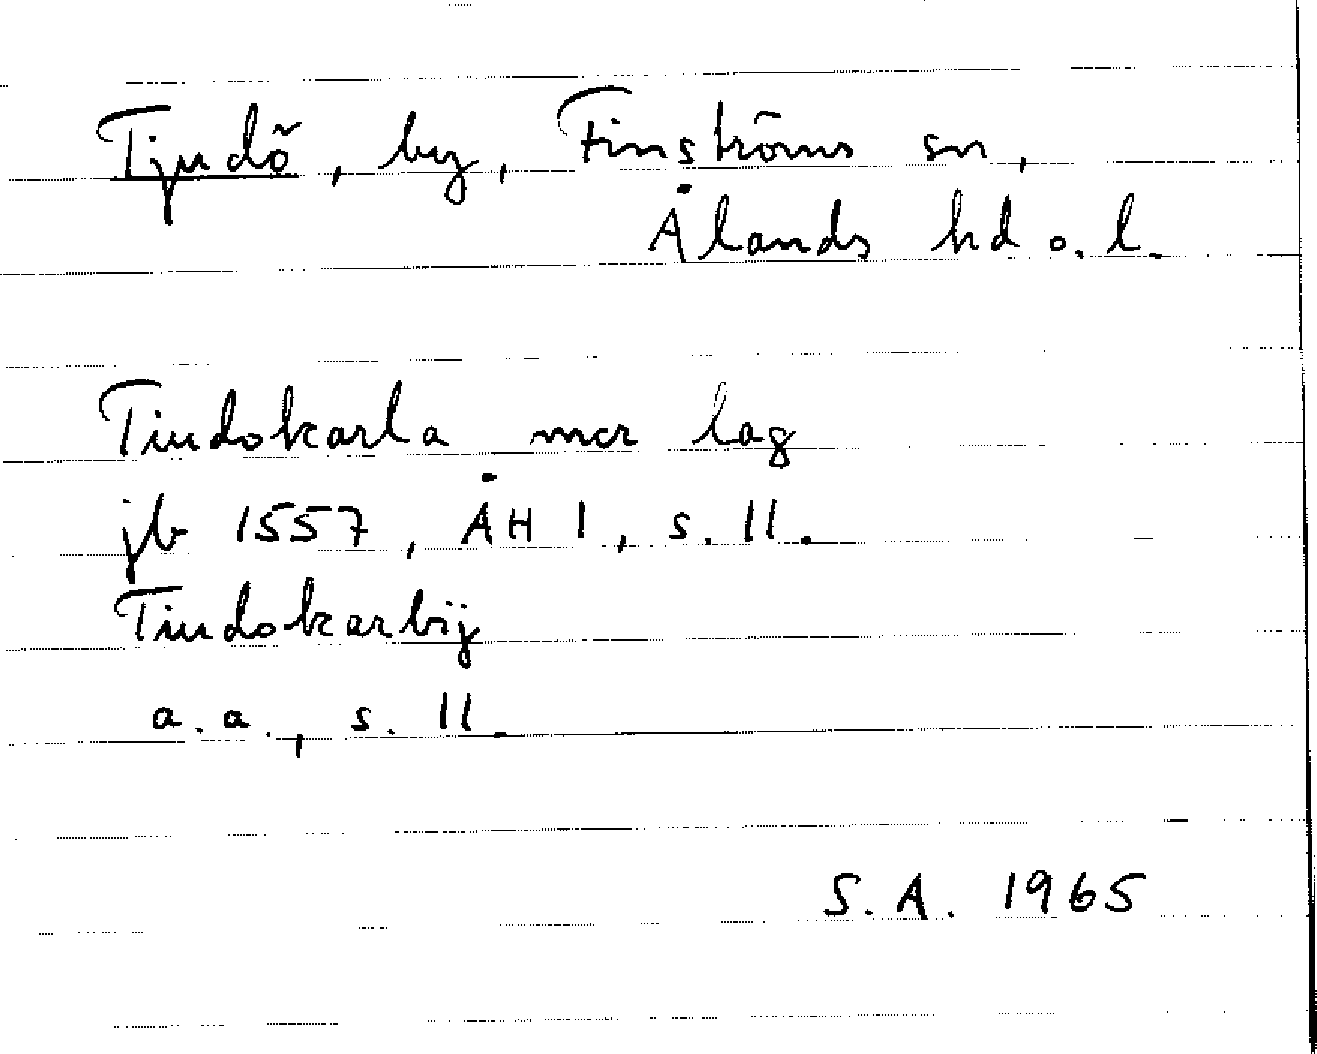 Tjudö, by, Finströms sn,
Ålands hd o. l.
Tiudokarla mcr lag
jb 1557, ÅH I, s. 11.
Tiudokarbij
a.a., s. 11.
S.A. 1965